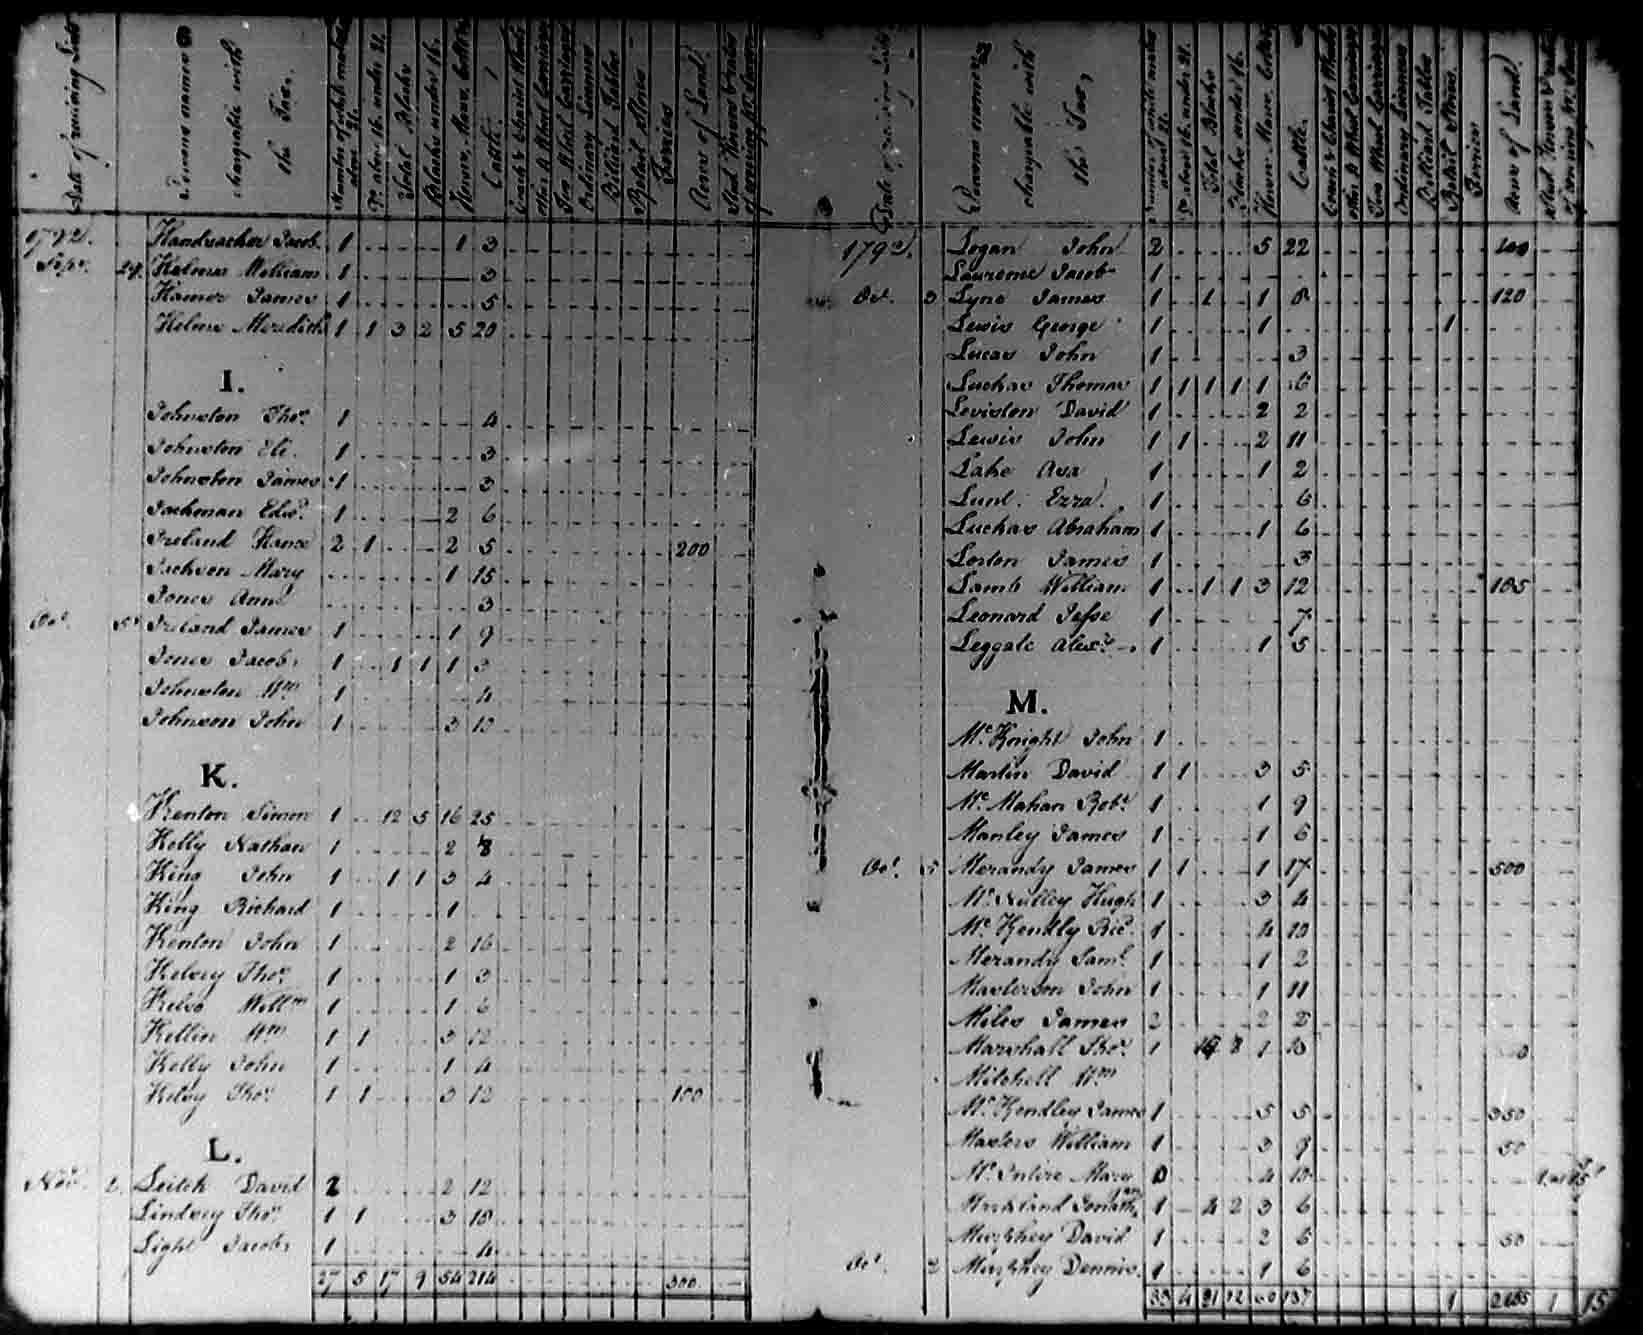 Date of receiving Lists
Persons names chargeable with the Tax,
Number of white males above 21.
Do. above 16. under 21.
Total Blacks
Blacks under 16.
Horses, Mares, Colts &
Cattle.
Coach & Chariot Wheels
other 4 Wheel Carriages
Two Wheel Carriages
Ordinary Licenses
Billiard Tables
Retail Stores
Ferries
Acres of Land.
1792.
Handsacher Jacob 1 1 3
Sepr. 29 Helms William 1 3
Hamer James 1 5
Helms Meredith 1 1 3 2 5 20
I.
Johnston Thos. 1 4
Johnston Eli. 1 3
Johnston James 1 3
Jackman Edwd. 1 2 6
Ireland Hance 2 1 2 5 200
Jackson Mary 1 15
Jones Ann 3
Oct. 5 Ireland James 1 1 9
Jones Jacob 1 1 1 1 3
Johnston Wm. 1 4
Johnson John 1 3 13
K.
Kenton Simon 1 12 5 16 25
Kelly Nathan 1 2 8
King John 1 1 1 3 4
King Richard 1 1
Kenton John 1 2 16
Kelsey Thos. 1 1 3
Kelso Willm 1 1 6
Kellin Wm 1 1 3 12
Kelly John 1 1 4
Kelsy Thos. 1 1 3 12 100
L.
Nov. 2. Leitch David 2 2 12
Lindsey Thos. 1 1 3 10
Light Jacob 1 4
27 5 17 9 54 214 300
Date of receiving Lists
Persons names chargeable with the Tax,
Number white males above 21.
Do above 16 under 21.
Total Blacks
Blacks under 16.
Horses Mares Colts
Cattle.
Coach & Chariot Wheels
other 4 Wheel Carriages
Two Wheel Carriages
Ordinary Licenses
Billiard Tables
Retail Stores.
Ferries
Acres of Land.
1792. Logan John 2 5 22 100
Lawrence Jacob 1
Oct. 3 Lyne James 1 1 1 8 120
Lewis George 1 1 1
Lucas John 1 3
Luckas Thomas 1 1 1 1 1 6
Leviston David 1 2 2
Lewis John 1 1 2 11
Lake Asa 1 1 2
Lunt. Ezra. 1 6
Luckas Abraham 1 1 6
Lorton James 1 3
Lamb William 1 1 1 3 12 185
Leonard Jesse 1 7
Leggate Alexr. 1 1 5
M.
Mc.Knight John 1
Martin David 1 1 3 5
Mc.Mahan Robt. 1 1 9
Manley James 1 1 6
Oct. 5 Merandy James 1 1 1 17 500
Mc.Nulley Hugh 1 3 4
Mc.Kendly Ricd. 1 4 10
Merandy Saml. 1 1 2
Masterson John 1 1 11
Miles James 2 2
Marshall Thos. 1 8 1
Mitchell Wm
Mc.Kendley James 1 5 5 350
Masters William 1 3 9 50
Mc.Intire Mary 0 4 10
Markland Jonathan 1 4 2 3 6
Murphey David 1 2 6 50
Oct. 2 Murphey Dennis. 1 1 6
4 12 1 1 15